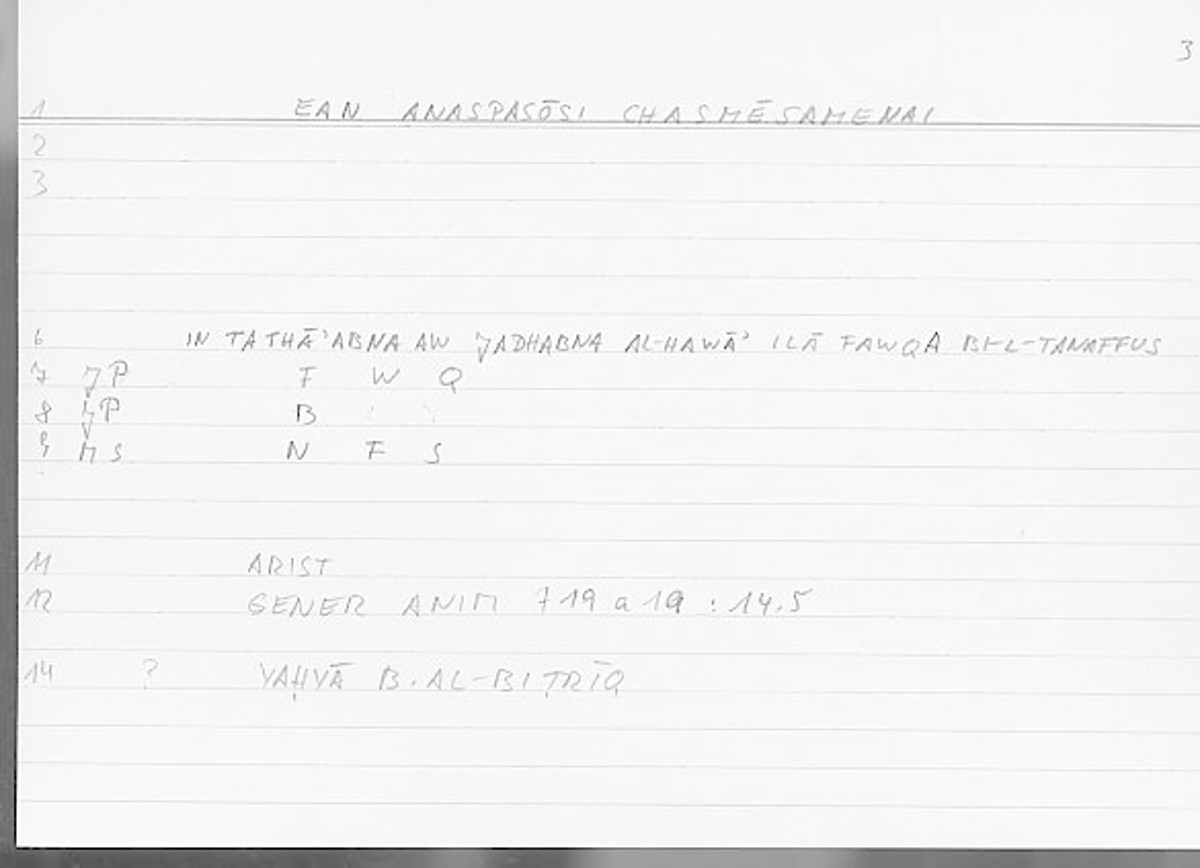 3
1 EAN ANASPASŌSI CHASMĒSAMENAI
2
3
6 IN TATHĀʾABNA AW JADHABNA AL-HAWĀʾ ILĀ FAWQA BI-L-TANAFFUS
7 JP F W Q
8 B
9 MS N F S
11 ARIST
12 GENER ANIM 719 a 19 : 14.5
14 ? YAḤYĀ B. AL-BIṬRĪQ